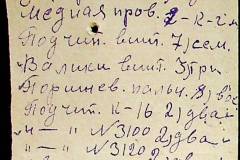 Медная пров. 2-К-2м
Подшип. вшт. 7) сем.
Валики вшт. 3) три.
Поршнев. пальц. 8) вос
Подшит. К-16 2) два
" — " № 3100 2) два
" — " № 3120 2) два